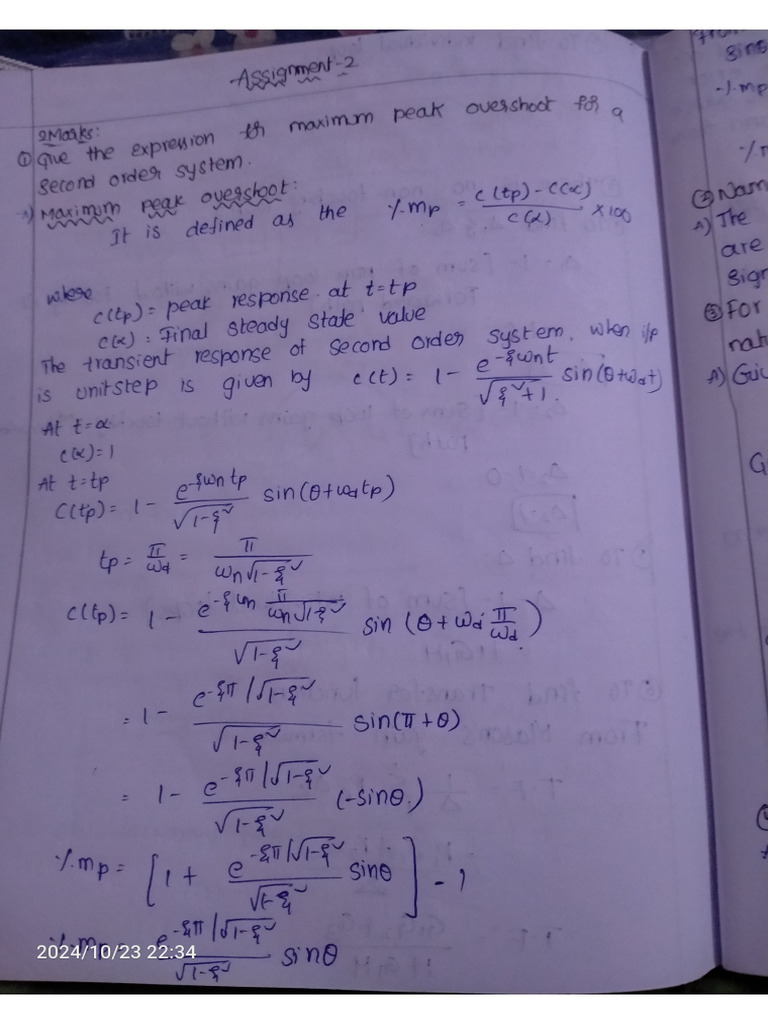 Assignment-2
2Marks:
① Give the expression for maximum peak overshoot for a
second order system.
A) Maximum peak overshoot:
It is defined as the %.mp = c(tp) - c(α) / c(α) × 100
where
c(tp) = peak response at t=tp
c(α) = Final steady state value
The transient response of second order system, when i/p
is unitstep is given by c(t) = 1 - e^-ξωnt / √ξ²+1 sin(θ+ωdt)
At t=α
c(α)=1
At t=tp
C(tp) = 1 - e^-ξωntp / √1-ξ² sin(θ+ωdtp)
tp = π/ωd = π / ωn√1-ξ²
c(tp) = 1 - e^-ξωn π/ωn√1-ξ² / √1-ξ² sin (θ + ωd π/ωd)
= 1 - e^-ξπ/√1-ξ² / √1-ξ² sin(π+θ)
= 1 - e^-ξπ/√1-ξ² / √1-ξ² (-sinθ)
%.mp = [1 + e^-ξπ/√1-ξ² / √1-ξ² sinθ] - 1
%.mp = e^-ξπ/√1-ξ² / √1-ξ² sinθ
2024/10/23 22:34
sinθ
%.mp
② Nam
A) The
are
sign
③ For
nat
A) Giv
G